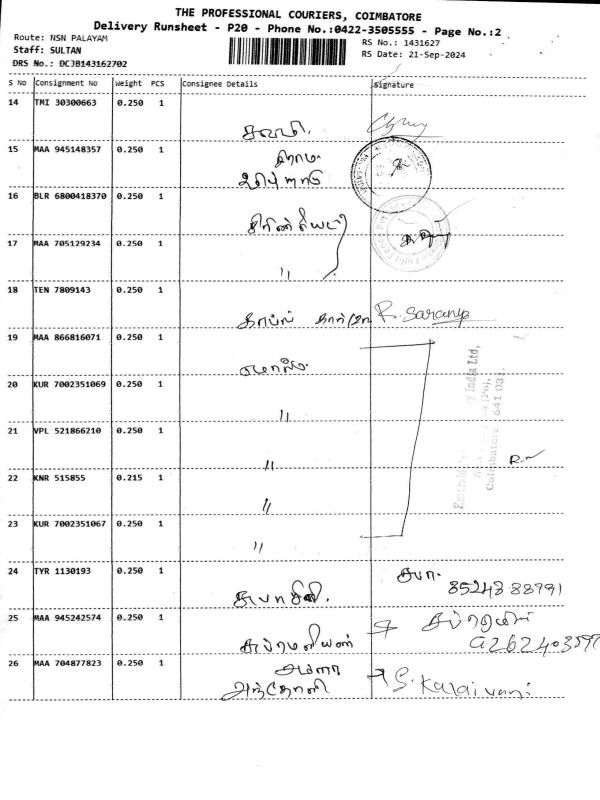 THE PROFESSIONAL COURIERS, COIMBATORE
Delivery Runsheet - P20 - Phone No.:0422-3505555 - Page No.:2
Route: NSN PALAYAM
RS No.: 1431627
Staff: SULTAN
RS Date: 21-Sep-2024
DRS No.: DCJB143162702
S No Consignment No Weight PCS Consignee Details Signature
14 TMI 30300663 0.250 1
15 MAA 945148357 0.250 1
16 BLR 6800418370 0.250 1
17 MAA 705129234 0.250 1
"
18 TEN 7809143 0.250 1
R. Saranya
19 MAA 866816071 0.250 1
20 KUR 7002351069 0.250 1
"
21 VPL 521866210 0.250 1
"
22 KNR 515855 0.215 1
"
23 KUR 7002351067 0.250 1
"
India Ltd,
Coimbatore 641 031
24 TYR 1130193 0.250 1
சுபா.
85243 88791
25 MAA 945242574 0.250 1
சுப்ரமணியன்
26 MAA 704877823 0.250 1
அந்தோணி
S. Kalaivani